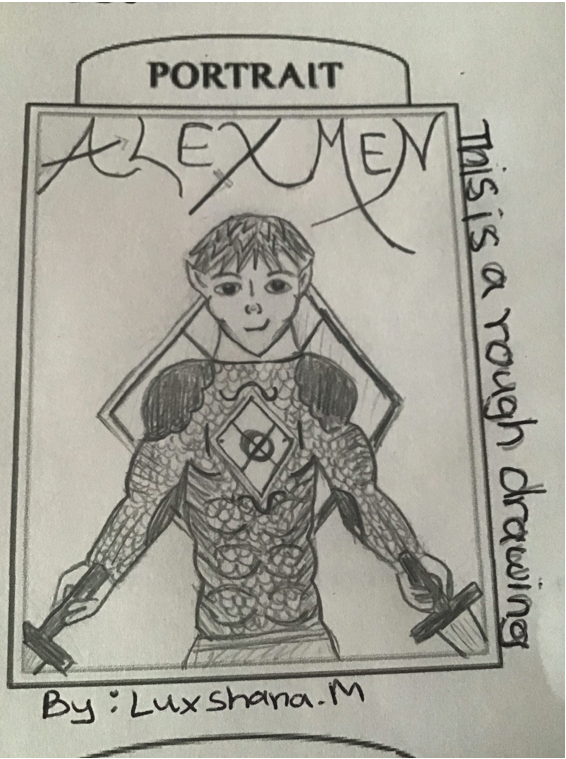 PORTRAIT
ALEX MEN
This is a rough drawing
By: Luxshana.M